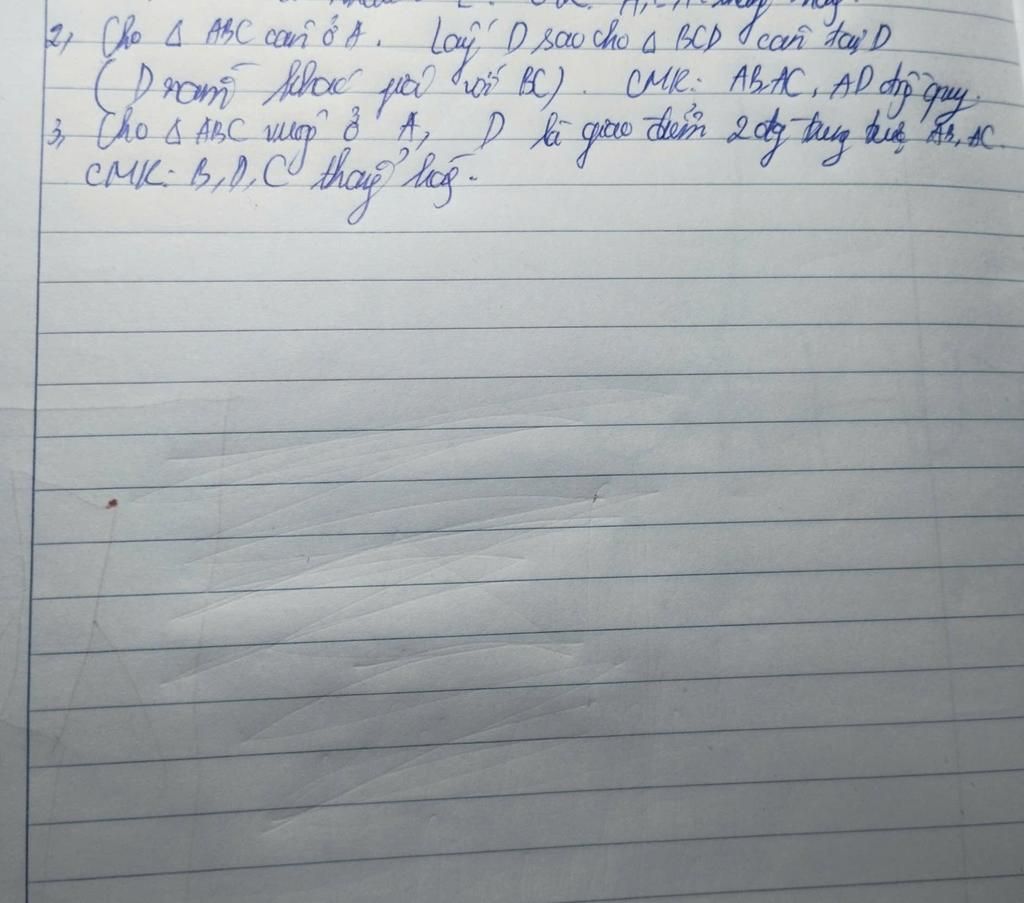 A, E,
2, Cho Δ ABC cân ở A. Lấy D sao cho Δ BCD cân tại D
(D nằm khác phía với BC). CMR: AB, AC, AD đồng quy.
3, Cho Δ ABC vuông ở A, D là giao điểm 2 đg trung trực AB, AC.
CMR: B, D, C thẳng hàng.